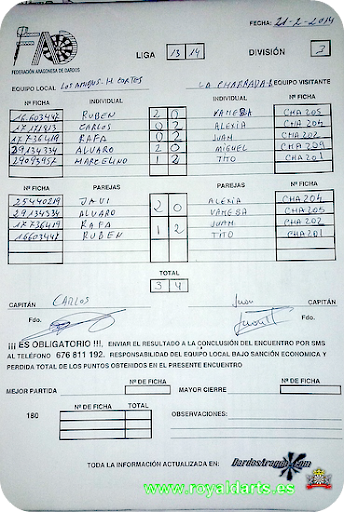 FECHA: 21-2-2014
FAD
LIGA 13 14 DIVISIÓN 3
FEDERACIÓN ARAGONESA DE DARDOS
EQUIPO LOCAL LOS AMIGOS-H. CORTES LA CHABNADA EQUIPO VISITANTE
Nº FICHA INDIVIDUAL INDIVIDUAL Nº FICHA
16603447 RUBEN 2 0 VANESA CHA205
CARLOS 0 2 ALEXIA CHA204
17736419 RAFA 0 2 JUAN CHA202
29134334 ALVARO 2 0 MIGUEL CHA209
29093957 MARCELINO 1 2 TITO CHA201
Nº FICHA PAREJAS PAREJAS Nº FICHA
25440219 JAVI 2 0 ALEXIA CHA204
29134334 ALVARO VANESA CHA205
17736419 RAFA 1 2 JUAN CHA202
16603447 RUBEN TITO CHA201
TOTAL
3 4
CAPITÁN CARLOS Juan CAPITÁN
Fdo. Fdo.
¡¡¡ ES OBLIGATORIO !!!. ENVIAR EL RESULTADO A LA CONCLUSIÓN DEL ENCUENTRO POR SMS
AL TELÉFONO 676 811 192. RESPONSABILIDAD DEL EQUIPO LOCAL BAJO SANCIÓN ECONOMICA Y
PERDIDA TOTAL DE LOS PUNTOS OBTENIDOS EN EL PRESENTE ENCUENTRO
MEJOR PARTIDA Nº DE FICHA MAYOR CIERRE Nº DE FICHA
180 Nº DE FICHA TOTAL OBSERVACIONES:
TODA LA INFORMACIÓN ACTUALIZADA EN: DardosAragon.com
www.royaldarts.es